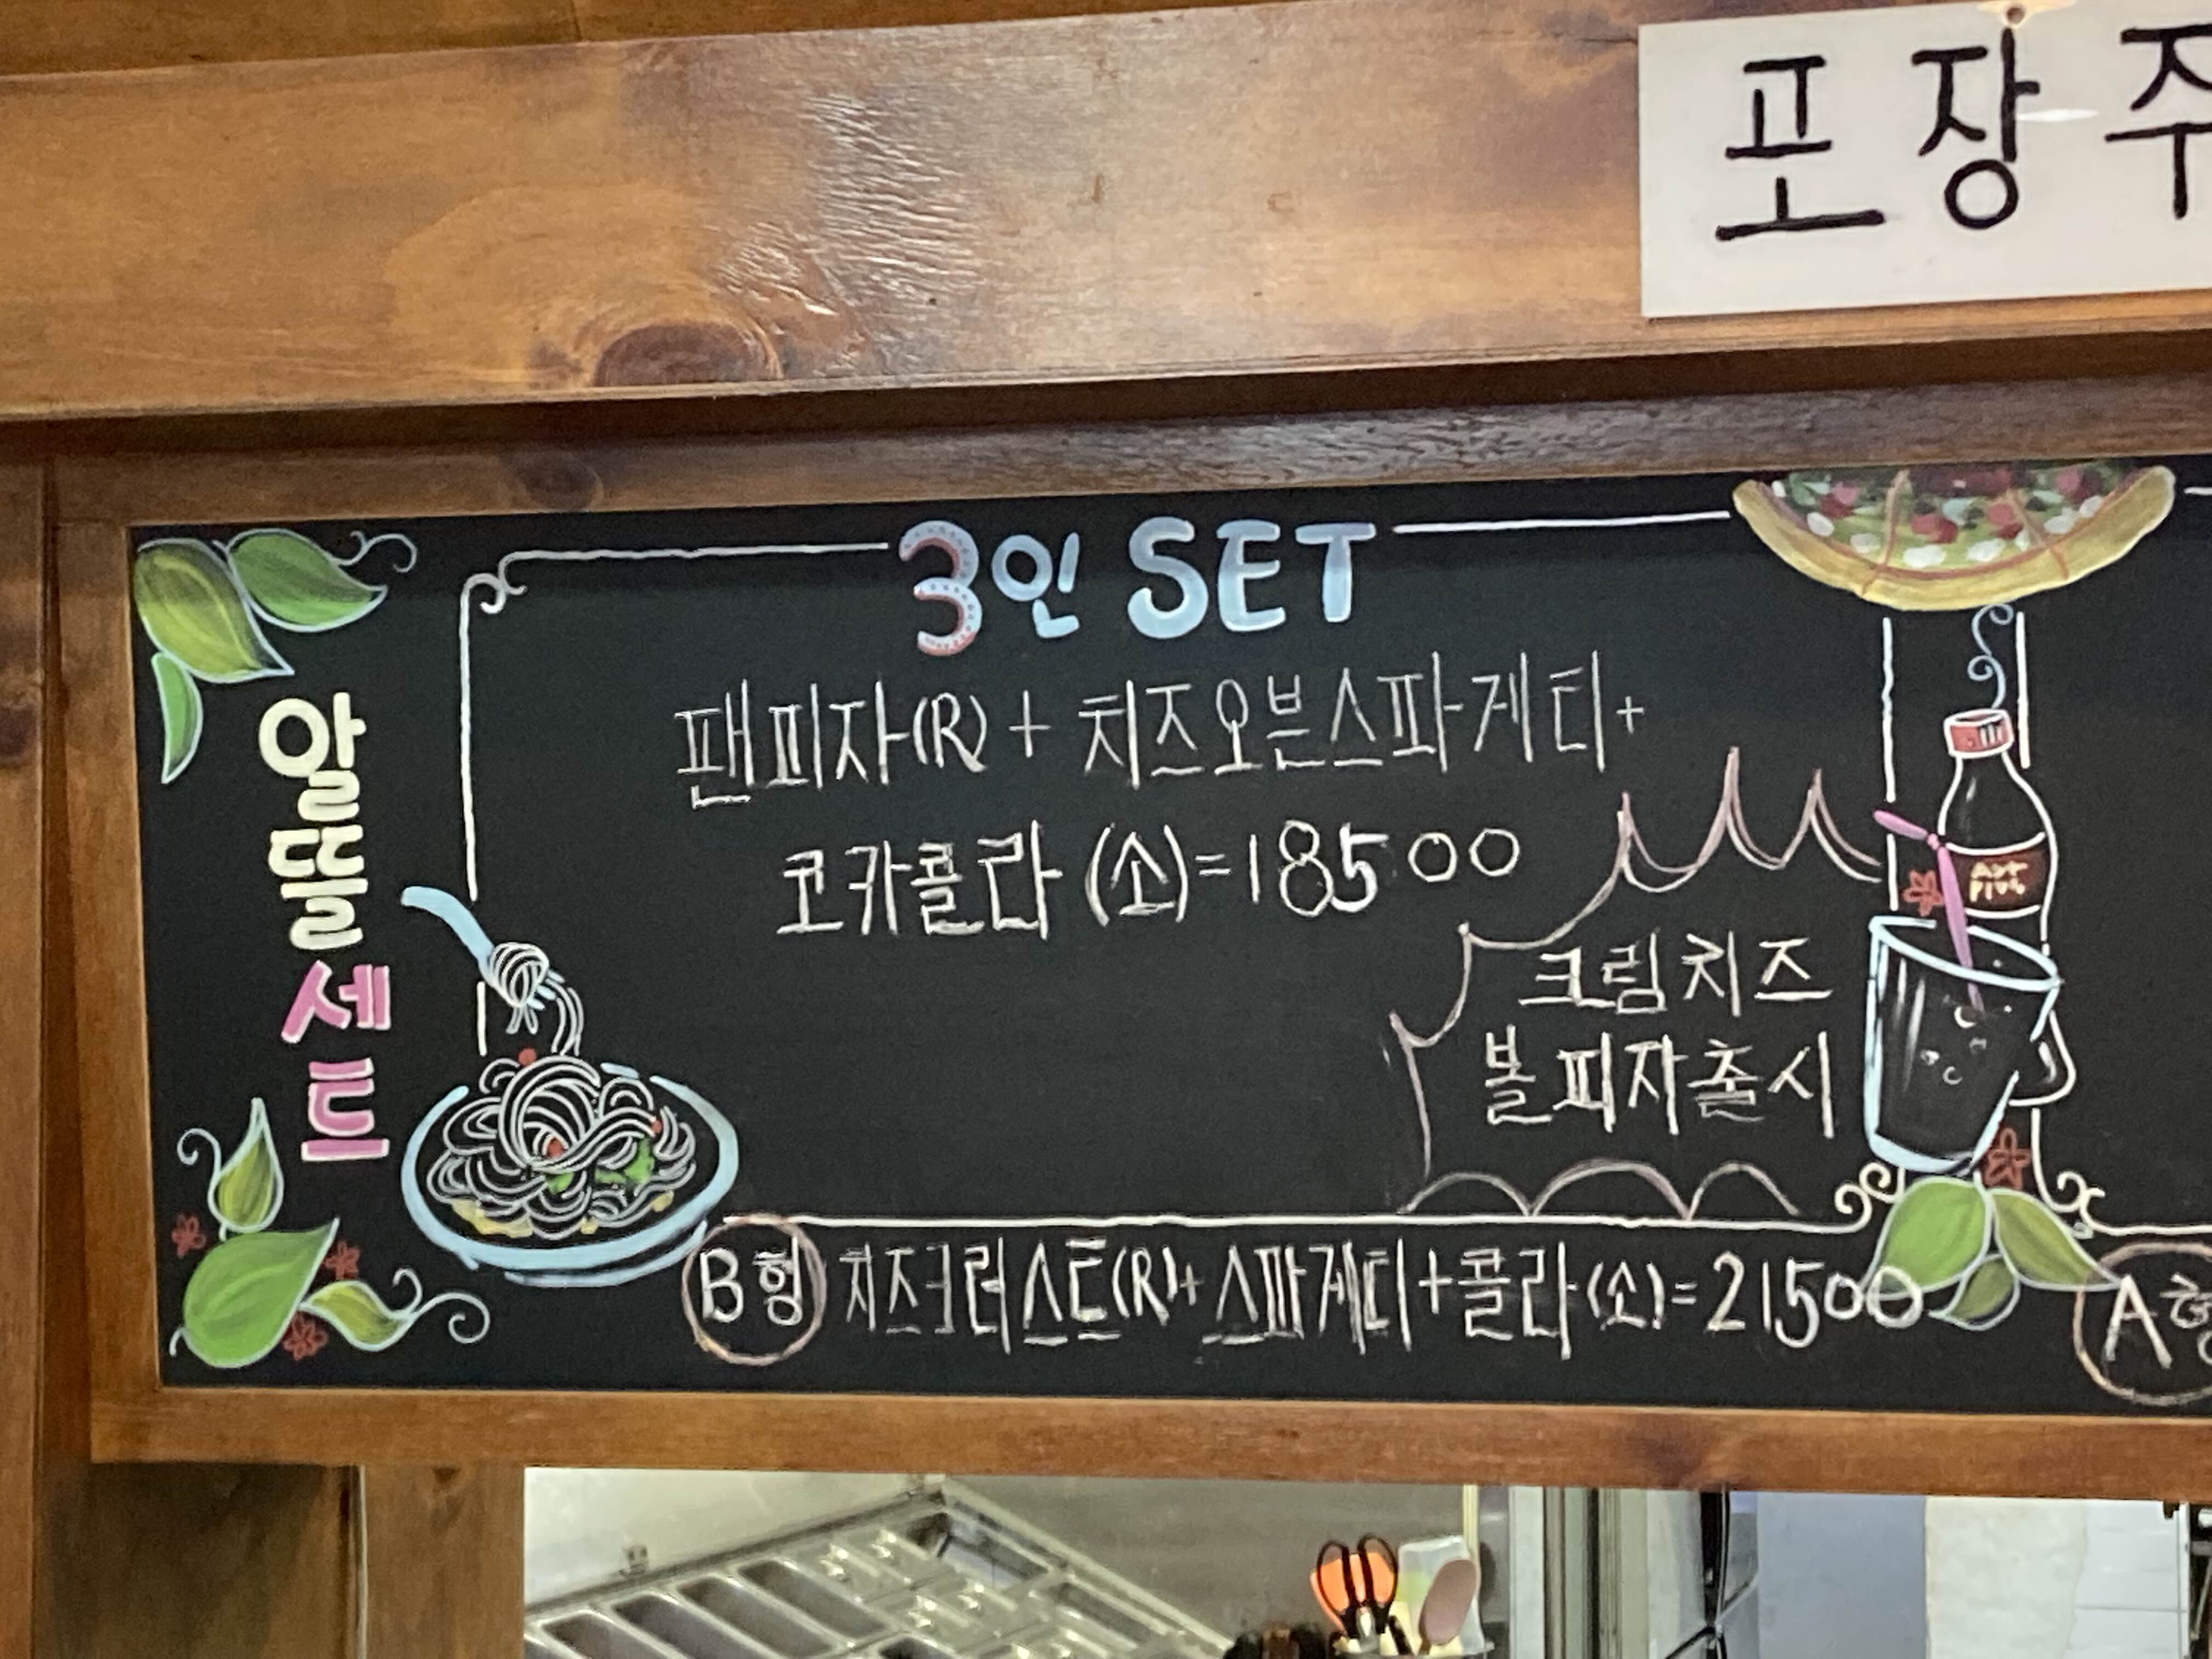 포장주
3인 SET
알뜰세트
팬피자(R) + 치즈오븐스파게티+
코카콜라 (소)=18500
크림치즈
볼피자출시
B형 치즈크러스트(R)+스파게티+콜라(소)=21500
A형